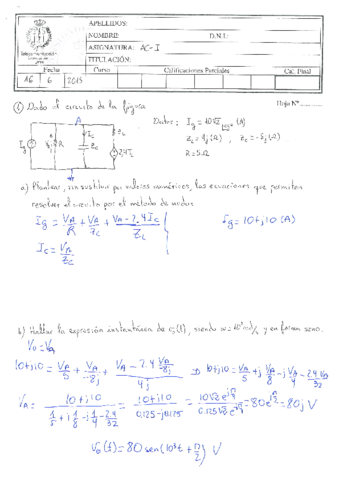 APELLIDOS:
NOMBRE: D.N.I.:
ASIGNATURA: AC-I
TITULACIÓN:
Fecha Curso Calificaciones Parciales Cal. Final
16 6 2015
Hoja Nº
Dado el circuito de la figura
A
Datos: Ig = 10√2 (A)
Zc = -8j (Ω)
R = 5 Ω
Ig R Ic Zc ZL 2,4Ic
a) Plantear, sin sustituir por valores numéricos, las ecuaciones que permiten
resolver el circuito por el método de nudos
Ig = VA/R + VA/Zc + (VA - 2,4 Ic)/ZL
Ig = 10 + j10 (A)
Ic = VA/Zc
b) Hallar la expresión instantánea de (t), siendo w = 10³ rad/s y en forma seno.
V0 = VA
10+j10 = VA/5 + VA/-8j + (VA - 2,4 VA/-8j)/4j ⇒ 10+j10 = VA/5 + j VA/8 - j VA/4 - 2,4 VA/32
VA = (10+j10)/(1/5 + j1/8 - j1/4 - 2,4/32) = (10+j10)/(0,125 - j0,125) = = 80j V
V0(t) = 80 sen(10³t + π/2) V